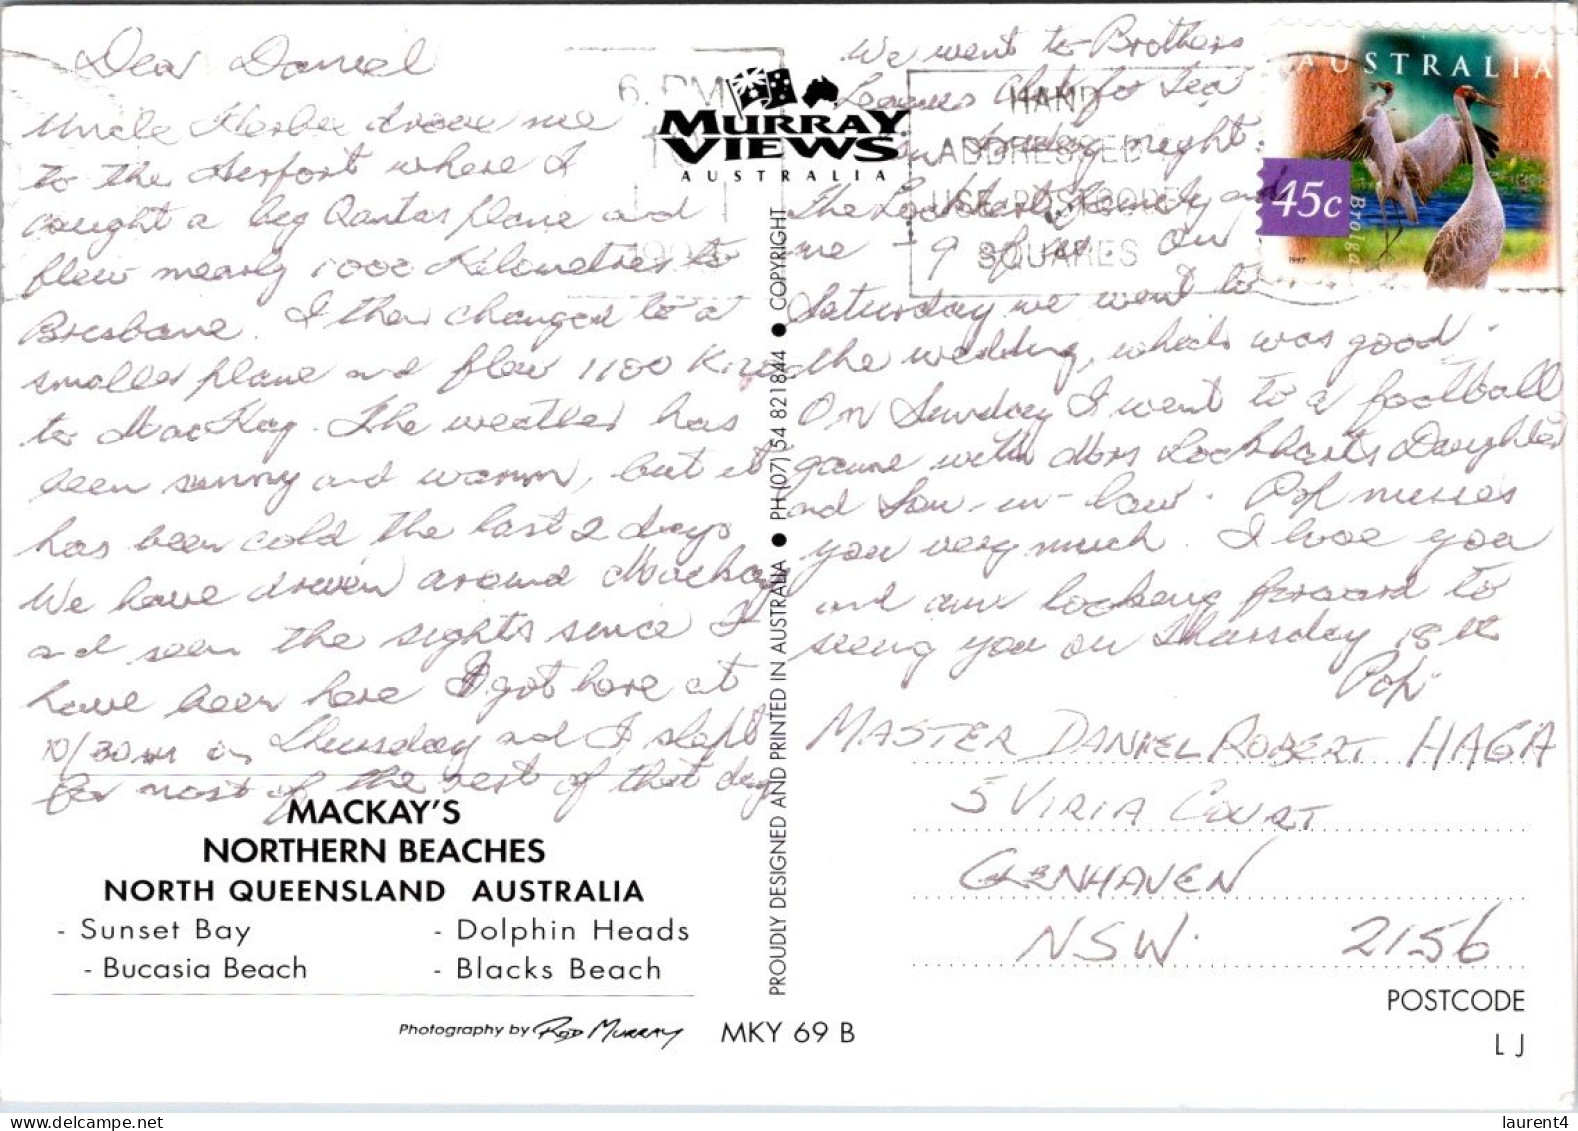 Dear Daniel
Uncle Herbie drove me
to the Airport where I
caught a big Qantas plane and
flew nearly 1000 Kilometres to
Brisbane. I then changed to a
smaller plane and flew 1100 K
to MacKay. The weather has
been sunny and warm, but it
has been cold the last 2 days
We have driven around Mackay
and seen the sights since I
have been here I got here at
10/30 am on Thursday and I slept
for most of the rest of that day
We went to Brothers
Leagues Club for Tea
on Friday night.
The Lockhart family and
me - 9 of us. On
Saturday we went to
the wedding, which was good.
On Sunday I went to a football
game with Mrs Lockharts Daughter
and Son-in-law. Pop misses
you very much. I love you
and am looking forward to
seeing you on Thursday 18th
Pop
MASTER DANIEL ROBERT HAGA
5 VIRIA COURT
GLENHAVEN
NSW. 2156
POSTCODE
L J
6. PM
199
HAND
ADDRESSED
USE POSTCODE
SQUARES
AUSTRALIA
45c
Brolga
1997
MURRAY
VIEWS
AUSTRALIA
PROUDLY DESIGNED AND PRINTED IN AUSTRALIA ● PH (07) 54 821844 ● COPYRIGHT
MACKAY'S
NORTHERN BEACHES
NORTH QUEENSLAND AUSTRALIA
- Sunset Bay - Dolphin Heads
- Bucasia Beach - Blacks Beach
Photography by ROD MURRAY MKY 69 B
laurent4